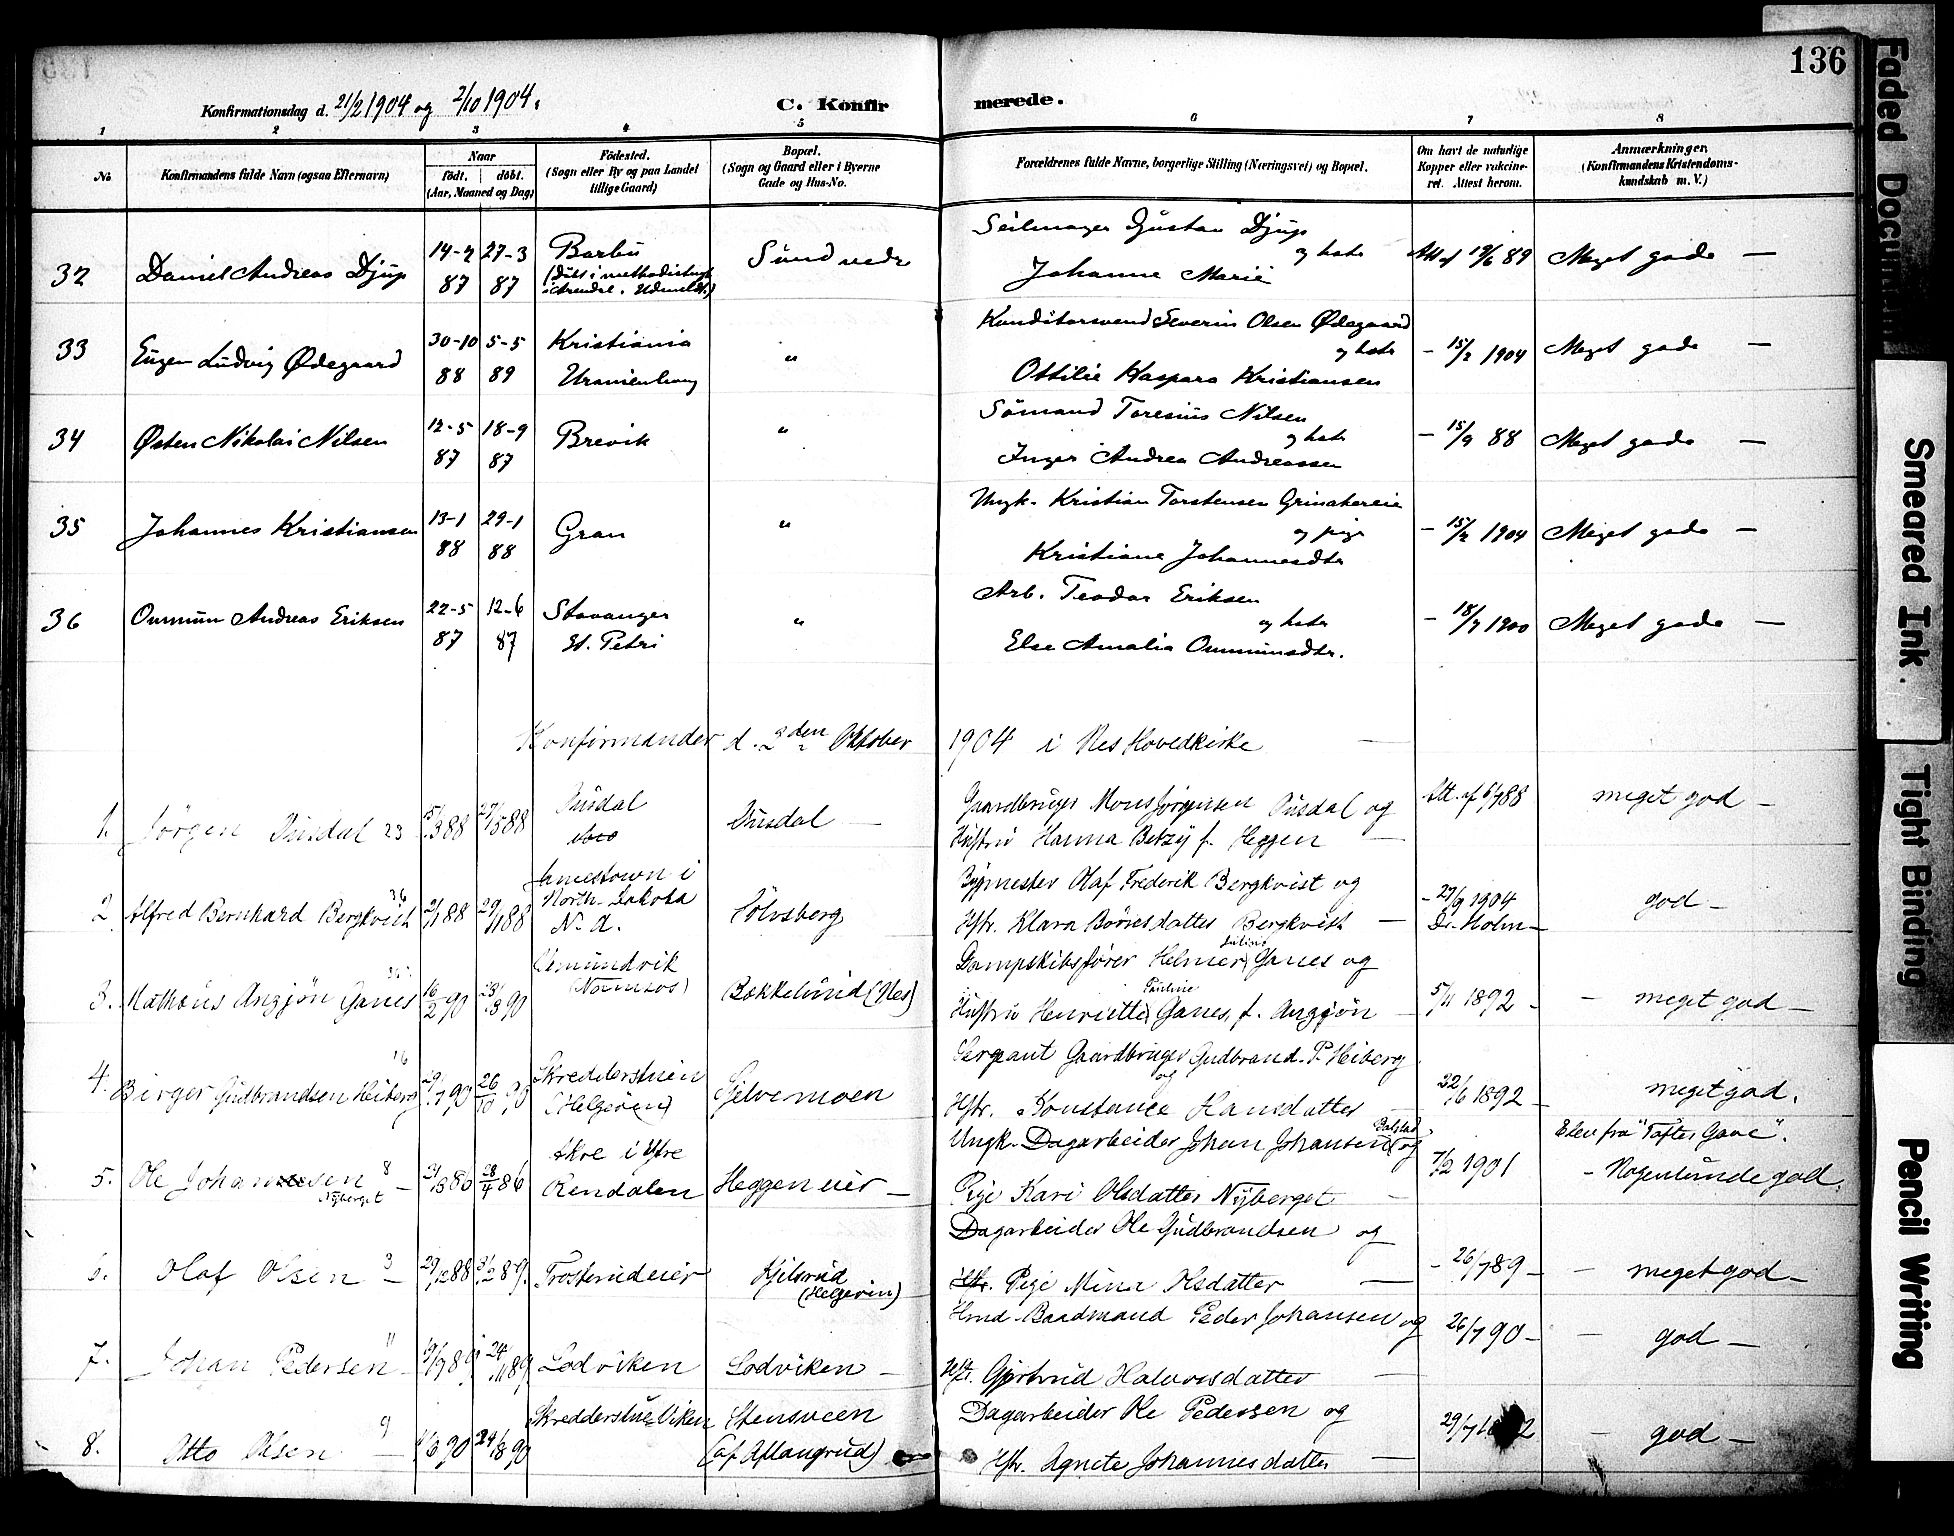 136
Konfirmationsdag d. 21/2 1904 og 2/10 1904.
C. Konfirmerede.
1 2 3 4 5 6 7 8
No.
Konfirmandens fulde Navn (ogsaa Efternavn)
Naar
født. døbt.
(Aar, Maaned og Dag)
Fødested.
(Sogn eller By og paa Landet
tillige Gaard)
Bopæl.
(Sogn og Gaard eller i Byerne
Gade og Hus-No.
Forældrenes fulde Navne, borgerlige Stilling (Næringsvei) og Bopæl.
Om havt de naturlige
Kopper eller vakcine-
ret. Attest herom.
Anmærkninger
(Konfirmandens Kristendoms-
kundskab m. V.)
32 Daniel Andreas Djup
14-2 87
27-3 87
Barbu
(Døbt i methodistkirk
i Arendal. Udmeldt.)
Sundnede
Seilmager Gustav Djup
og hstr
Johanne Marie
Att af 19/6 89
Meget gode —
33 Eugen Ludvig Ødegaard
30-10 88
5-5 89
Kristiania
Uranienborg
"
Konditorsvend Severin Olsen Ødegaard
og hstr
Ottilie Kaspara Kristiansen
- 15/2 1904
Meget gode —
34 Østen Nikolai Nilsen
12-5 87
18-9 87
Brevik
"
Sømand Toresius Nilsen
og hstr
Inger Andrea Andreassen
- 15/9 88
Meget gode —
35 Johannes Kristiansen
13-1 88
29-1 88
Gran
"
Ungk. Kristian Torstensen Grinakereie
og pige
Kristiane Johannesdtr
- 15/2 1904
Meget gode —
36 Ommun Andreas Eriksen
22-5 87
12-6 87
Stavanger
St. Petri
"
Arb. Teodor Eriksen
og hstr
Else Amalia Ommunsdtr.
- 18/7 1900
Meget gode —
Konfirmander d. 2den Oktober 1904 i Nes Hovedkirke —
1. Jørgen Dusdal 23
15/3 88
27/5 88
Dusdal
Dusdal —
Gaardbruger Mons Jørgensen Dusdal og
Hustru Hanna Betzy f. Heggen —
Att. af 6/7 88
meget god —
2 Alfred Bernhard Bergkvist 36
2/1 88
29/1 88
Jamestown i
North-Dakota
N. A.
Sølvsberg
Bygmester Olaf Frederik Bergkvist og
Hstr. Klara Børresdatter Bergkvist —
- 27/9 1904
Dr. Holm —
god —
3. Mathæus Angjøn Ganes
16/2 90
23/3 90
(Namsos)
Bækkelund (Nes)
Dampskibsfører Helmer Julius Ganes og
Hustru Henriette Pauline Ganes, f. Angjøn —
5/11 1892 -
— meget god —
4. Birger Gudbrandsen Heiberg 16
29/7 90
26/10 90
Skredderstuen
(Helgøen)
Gjelvemoen
Sergeant Gaardbruger Gudbrand P. Heiberg
og
Hstr. Konstance Hansdatter —
22/6 1892 -
meget god.
5. Ole Johannesen 8 —
Nyberget
2/3 86
28/4 86
Akre i Ytre
Rendalen
Heggen eier —
Ungk. Dagarbeider Johan Johansen og
Pige Kari Olsdatter Nyberget —
7/2 1901
Elev fra "Toftes Gave".
- Nogenlunde god.
6. Olaf Olsen 3 —
29/12 88
3/2 89
Frosterudeier
Kjilsrud
(Helgøen)
Dagarbeider Ole Gudbrandsen og
Hstr. Pige Mina Olsdatter —
- 26/7 89 -
— meget god —
7. Johan Pedersen 11
24/11 89
Lodviken
Lodviken —
Hmd Baadmand Peder Johansen og
Hst. Gjertrud Halvorsdatter —
26/7 90 -
— god —
8. Otto Olsen 9 —
24/8 90
Skredderstue Viken
Stensveen
(af Atlangrud)
Dagarbeider Ole Pedersen og
Hstr. Agnete Johannesdatter —
— god —
Faded Document
Smeared Ink.
Tight Binding
Pencil Writing